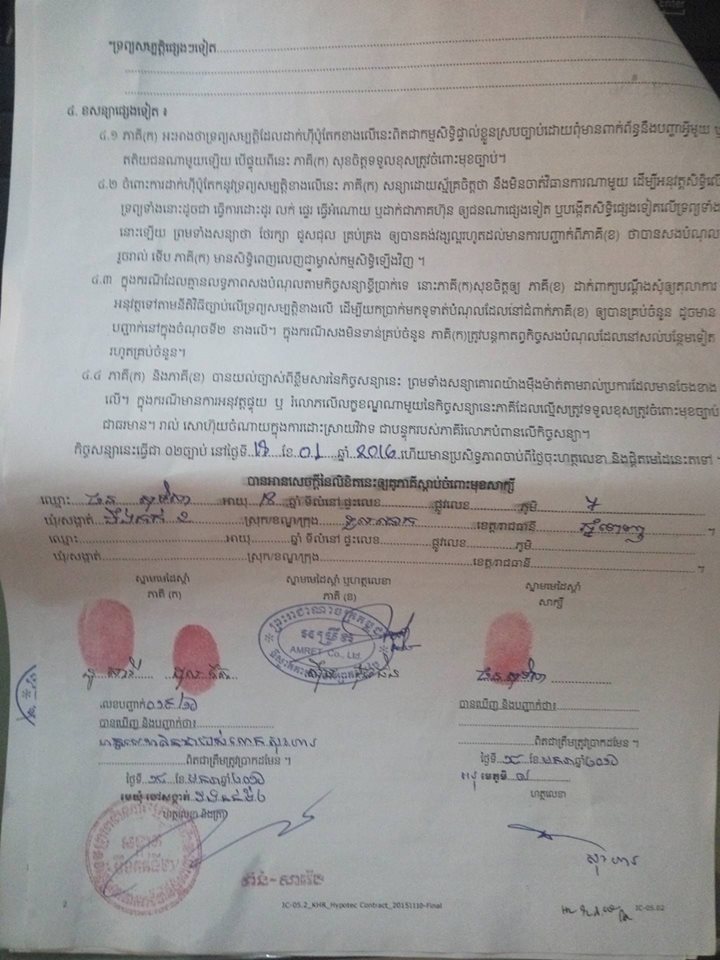 ៗទ្រព្យសម្បត្តិផ្សេងៗទៀត
៤. ខសន្យាផ្សេងទៀត ៖
៤.១ ភាគី(ក) អះអាងថាទ្រព្យសម្បត្តិដែលដាក់ហ៊ីប៉ូតែកខាងលើនេះពិតជាកម្មសិទ្ធិផ្ទាល់ខ្លួនស្របច្បាប់ដោយពុំមានពាក់ព័ន្ធនឹងបញ្ហាអ្វីមួយ ឬ
តតិយជនណាមួយឡើយ បើផ្ទុយពីនេះ ភាគី(ក) សុខចិត្តទទួលខុសត្រូវចំពោះមុខច្បាប់។
៤.២ ចំពោះការដាក់ហ៊ីប៉ូតែកនូវទ្រព្យសម្បត្តិខាងលើនេះ ភាគី(ក) សន្យាដោយស្ម័គ្រចិត្តថា នឹងមិនចាត់វិធានការណាមួយ ដើម្បីអនុវត្តសិទ្ធិលើ
ទ្រព្យទាំងនោះដូចជា ធ្វើការដោះដូរ លក់ ផ្ទេរ ធ្វើអំណោយ ឬដាក់ជាភាគហ៊ុន ឲ្យជនណាផ្សេងទៀត ឬបង្កើតសិទ្ធិផ្សេងទៀតលើទ្រព្យទាំង
នោះឡើយ ព្រមទាំងសន្យាថា ថែរក្សា ជួសជុល គ្រប់គ្រង ឲ្យបានគង់វង្សល្អរហូតដល់មានការបញ្ជាក់ពីភាគី(ខ) ថាបានសងបំណុល
រួចរាល់ ទើប ភាគី(ក) មានសិទ្ធិពេញលេញជាម្ចាស់កម្មសិទ្ធិឡើងវិញ ។
៤.៣ ក្នុងករណីដែលគ្មានលទ្ធភាពសងបំណុលតាមកិច្ចសន្យាខ្ចីប្រាក់ទេ នោះភាគី(ក)សុខចិត្តឲ្យ ភាគី(ខ) ដាក់ពាក្យបណ្តឹងសុំឲ្យតុលាការ
អនុវត្តទៅតាមនីតិវិធីច្បាប់លើទ្រព្យសម្បត្តិខាងលើ ដើម្បីយកប្រាក់មកទូទាត់បំណុលដែលនៅជំពាក់ភាគី(ខ) ឲ្យបានគ្រប់ចំនួន ដូចមាន
បញ្ជាក់នៅក្នុងចំណុចទី២ ខាងលើ។ ក្នុងករណីសងមិនទាន់គ្រប់ចំនួន ភាគី(ក)ត្រូវបន្តកាតព្វកិច្ចសងបំណុលដែលនៅសល់បន្ថែមទៀត
រហូតគ្រប់ចំនួន។
៤.៤ ភាគី(ក) និងភាគី(ខ) បានយល់ច្បាស់ពីខ្លឹមសារនៃកិច្ចសន្យានេះ ព្រមទាំងសន្យាគោរពយ៉ាងម៉ឺងម៉ាត់តាមរាល់ប្រការដែលមានចែងខាង
លើ។ ក្នុងករណីមានការអនុវត្តផ្ទុយ ឬ រំលោភលើលក្ខខណ្ឌណាមួយនៃកិច្ចសន្យានេះភាគីដែលល្មើសត្រូវទទួលខុសត្រូវចំពោះមុខច្បាប់
ជាធរមាន។ រាល់ សោហ៊ុយចំណាយក្នុងការដោះស្រាយវិវាទ ជាបន្ទុករបស់ភាគីរំលោភបំពានលើកិច្ចសន្យា។
កិច្ចសន្យានេះធ្វើជា ០២ច្បាប់ នៅថ្ងៃទី ខែ 01 ឆ្នាំ 2016 ហើយមានប្រសិទ្ធភាពចាប់ពីថ្ងៃចុះហត្ថលេខា និងផ្តិតមេដៃនេះតទៅ ។
បានអានសេចក្តីនៃលិខិតនេះឲ្យគូភាគីស្តាប់ចំពោះមុខសាក្សី
ឈ្មោះ អាយុ ឆ្នាំ ទីលំនៅ ផ្ទះលេខ ផ្លូវលេខ ភូមិ ៥
ឃុំ/សង្កាត់ បឹងកក់ ២ ស្រុក/ខណ្ឌ/ក្រុង ទួលគោក ខេត្ត/រាជធានី ភ្នំពេញ ។
ឈ្មោះ អាយុ ឆ្នាំ ទីលំនៅ ផ្ទះលេខ ផ្លូវលេខ ភូមិ
ឃុំ/សង្កាត់ ស្រុក/ខណ្ឌ/ក្រុង ខេត្ត/រាជធានី ។
ស្នាមមេដៃស្តាំ ស្នាមមេដៃស្តាំ ឬហត្ថលេខា ស្នាមមេដៃស្តាំ
ភាគី (ក) ភាគី (ខ) សាក្សី
អម្រឹត
AMRET Co., Ltd.
លេខបញ្ជាក់
បានឃើញ និងបញ្ជាក់ថា៖ បានឃើញ និងបញ្ជាក់ថា៖
ពិតជាត្រឹមត្រូវប្រាកដមែន ។ ពិតជាត្រឹមត្រូវប្រាកដមែន ។
ថ្ងៃទី ១៨ ខែ មករា ឆ្នាំ ២០១៦ ថ្ងៃទី ១៨ ខែ មករា ឆ្នាំ ២០១៦
មេឃុំ ចៅសង្កាត់ មេភូមិ
ហត្ថលេខា និងត្រា ហត្ថលេខា
2 IC-05.2_KHR_Hypotec Contract_20151110-Final IC-05.02